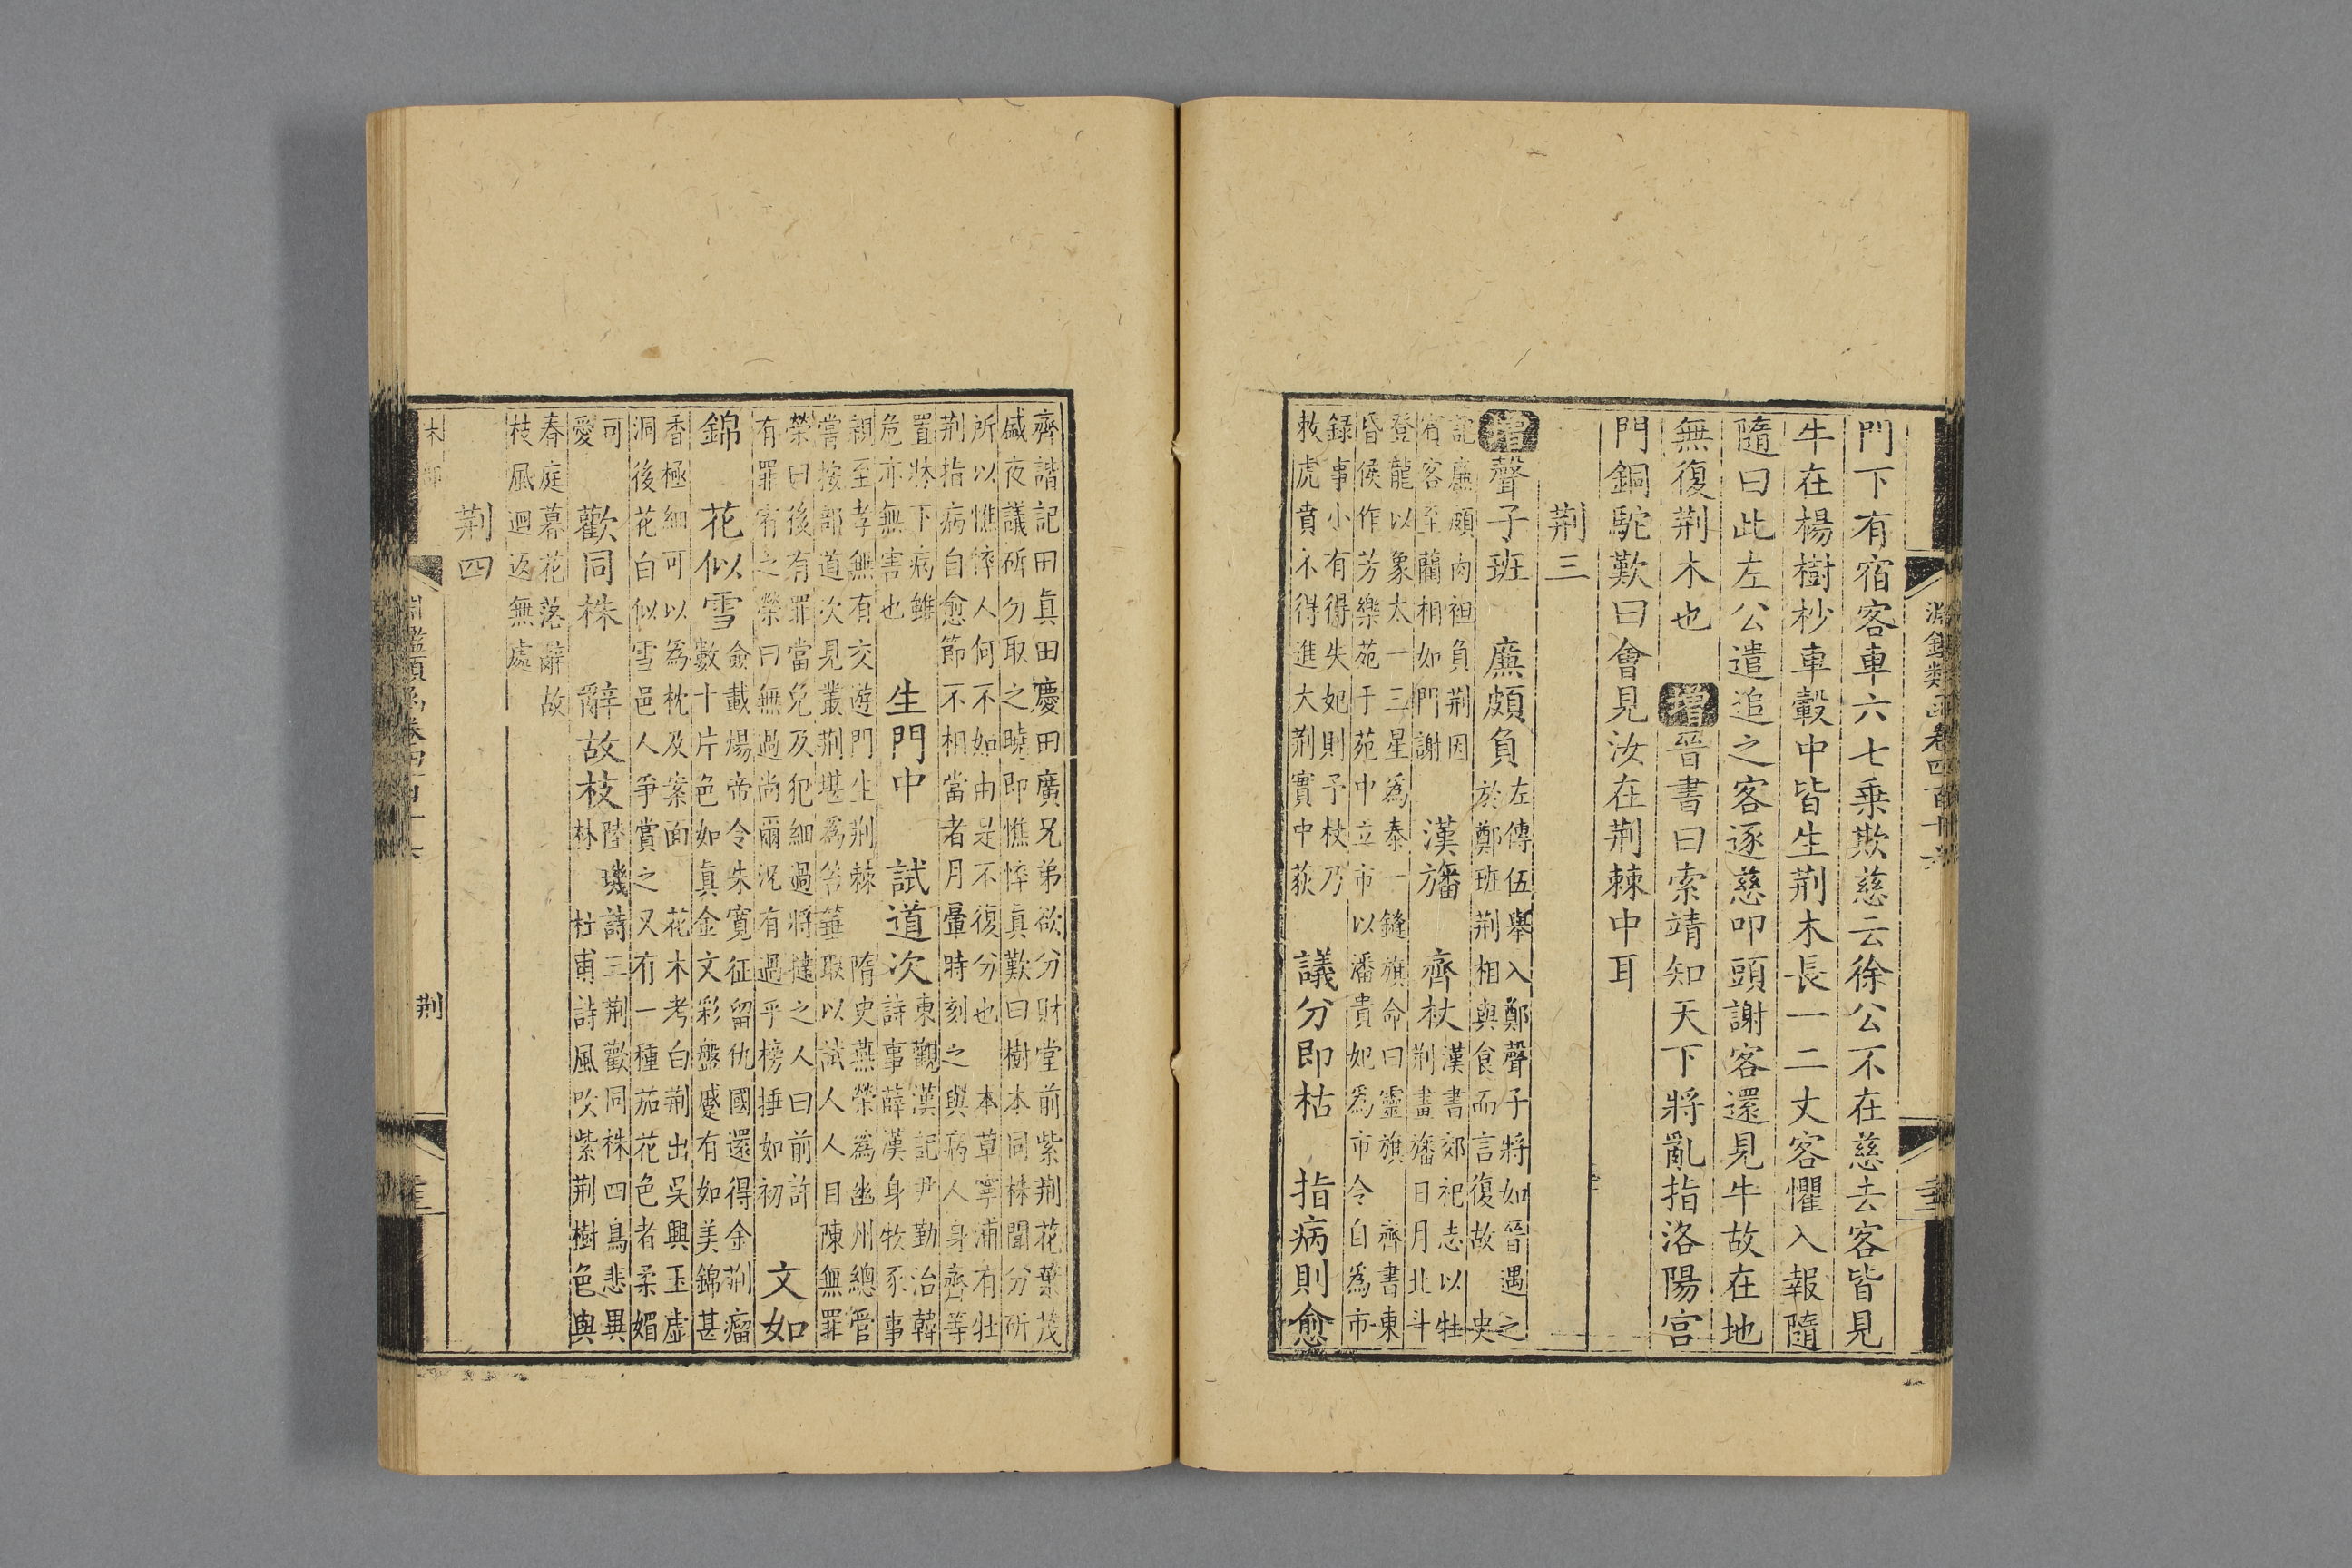 淵鑑類函卷四百十六
門下有宿客車六七乗欺慈云徐公不在慈去客皆見
牛在楊樹杪車轂中皆生荆木長一二丈客懼入報隨
隨曰此左公遣追之客逐慈叩頭謝客還見牛故在地
無復荆木也 增晉書曰索靖知天下將亂指洛陽宮
門銅駝歎曰會見汝在荆棘中耳
荆三
增聲子班
左傳伍舉入鄭聲子將如晉遇之
於鄭班荆相與食而言復故
廉頗負
史
記廉頗肉袒負荆因
賔客至藺相如門謝
漢旛
漢書郊祀志以牡
荆畫旛日月北斗
登龍以象太一三星為泰一鏠旗命曰靈旗
齊杖
齊書東
昏侯作芳樂苑于苑中立市以潘貴妃為市令自為市
録事小有得失妃則予杖乃
敕虎賁不得進大荆實中荻
議分即枯
指病則愈
齊諧記田真田慶田廣兄弟欲分財堂前紫荆花葉茂
盛夜議斫勿取之曉即憔悴真歎曰樹本同株聞分斫
所以憔悴人何不如由是不復分也
本草寧浦有牡
荆指病自愈節不相當者月暈時刻之與病人身齊等
置牀下病雖
危亦無害也
生門中
試道次
東觀漢記尹勤治韓
詩事薛漢身牧豕事
親至孝無有交遊門生荆棘
隋史燕榮為幽州總管
嘗按部道次見叢荆堪為笞箠取以試人人目陳無罪
榮曰後有罪當免及犯細過將撻之人曰前許
有罪宥之榮曰無過尚爾况有過乎榜捶如初
文如
錦
僉載煬帝令朱寬征留仇國還得金荆瘤
數十片色如真金文彩盤蹙有如美錦甚
香極細可以為枕及案面
花似雪
花木考白荆出吳興玉虛
洞後花白似雪邑人爭賞之又有一種茄花色者柔媚
可
愛
歡同株
辭故枝
陸璣詩三荆歡同株四鳥悲異
林
杜甫詩風吹紫荆樹色與
春庭暮花落辭故
枝風迴返無處
荆四
木部
荆